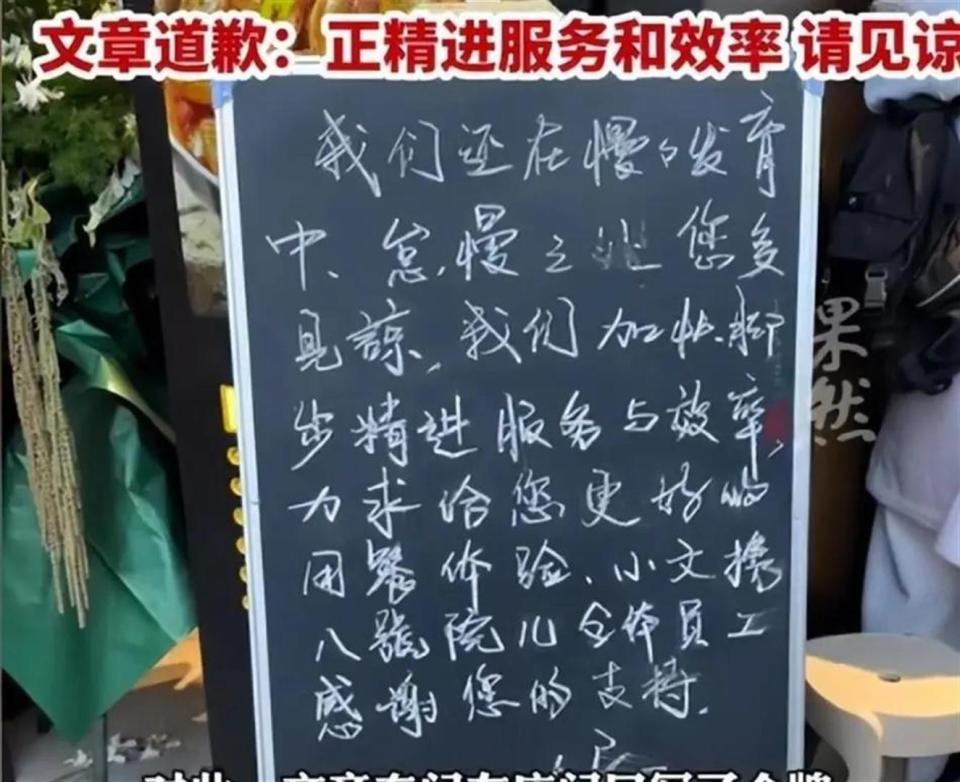 文章道歉：正精进服务和效率 请见谅
我们还在慢々发育
中、怠慢之处您多
見諒、我们加快脚
步精进服务与效率,
力求给您更好的
用餐体验、小文携
八號院儿全体員工
感謝您的支持.
果然